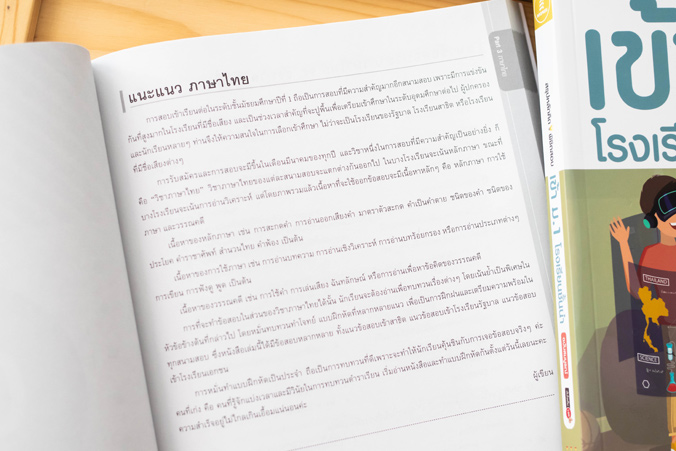 Part 3 ภาษาไทย
แนะแนว ภาษาไทย
การสอบเข้าเรียนต่อในระดับชั้นมัธยมศึกษาปีที่ 1 ถือเป็นการสอบที่มีความสำคัญมากอีกสนามสอบ เพราะมีการแข่งขัน
กันที่สูงมากในโรงเรียนที่มีชื่อเสียง และเป็นช่วงเวลาสำคัญที่จะปูพื้นเพื่อเตรียมเข้าศึกษาในระดับอุดมศึกษาต่อไป ผู้ปกครอง
และนักเรียนหลายๆ ท่านจึงให้ความสนใจในการเลือกเข้าศึกษา ไม่ว่าจะเป็นโรงเรียนของรัฐบาล โรงเรียนสาธิต หรือโรงเรียน
ที่มีชื่อเสียงต่างๆ
การรับสมัครและการสอบจะมีขึ้นในเดือนมีนาคมของทุกปี และวิชาหนึ่งในการสอบที่มีความสำคัญเป็นอย่างยิ่ง ก็
คือ "วิชาภาษาไทย" วิชาภาษาไทยของแต่ละสนามสอบจะแตกต่างกันออกไป ในบางโรงเรียนจะเน้นหลักภาษา ขณะที่
บางโรงเรียนจะเน้นการอ่านวิเคราะห์ แต่โดยภาพรวมแล้วเนื้อหาที่จะใช้ออกข้อสอบจะมีเนื้อหาหลักๆ คือ หลักภาษา การใช้
ภาษา และวรรณคดี
เนื้อหาของหลักภาษา เช่น การสะกดคำ การอ่านออกเสียงคำ มาตราตัวสะกด คำเป็นคำตาย ชนิดของคำ ชนิดของ
ประโยค คำราชาศัพท์ สำนวนไทย คำพ้อง เป็นต้น
เนื้อหาของการใช้ภาษา เช่น การอ่านบทความ การอ่านเชิงวิเคราะห์ การอ่านบทร้อยกรอง หรือการอ่านประเภทต่างๆ
การเขียน การฟังดู พูด เป็นต้น
เนื้อหาของวรรณคดี เช่น การใช้คำ การเล่นเสียง ฉันทลักษณ์ หรือการอ่านเพื่อหาข้อคิดของวรรณคดี
การที่จะทำข้อสอบในส่วนของวิชาภาษาไทยได้นั้น นักเรียนจะต้องอ่านเพื่อทบทวนเรื่องต่างๆ โดยเน้นย้ำเป็นพิเศษใน
หัวข้อข้างต้นที่กล่าวไป โดยหมั่นทบทวนทำโจทย์ แบบฝึกหัดที่หลากหลายแนว เพื่อเป็นการฝึกฝนและเตรียมความพร้อมใน
ทุกสนามสอบ ซึ่งหนังสือเล่มนี้ได้มีข้อสอบหลากหลาย ทั้งแนวข้อสอบเข้าสาธิต แนวข้อสอบเข้าโรงเรียนรัฐบาล แนวข้อสอบ
เข้าโรงเรียนเอกชน
การหมั่นทำแบบฝึกหัดเป็นประจำ ถือเป็นการทบทวนที่ดีเพราะจะทำให้นักเรียนคุ้นชินกับการเจอข้อสอบจริงๆ ค่ะ
คนที่เก่ง คือ คนที่รู้จักแบ่งเวลาและมีวินัยในการทบทวนตำราเรียน เริ่มอ่านหนังสือและทำแบบฝึกหัดกันตั้งแต่วันนี้เลยนะคะ
ความสำเร็จอยู่ไม่ไกลเกินเอื้อมแน่นอนค่ะ
ผู้เขียน
เข้า ม.1
เข้
โรงเรี
THAILAND
SCIENCE